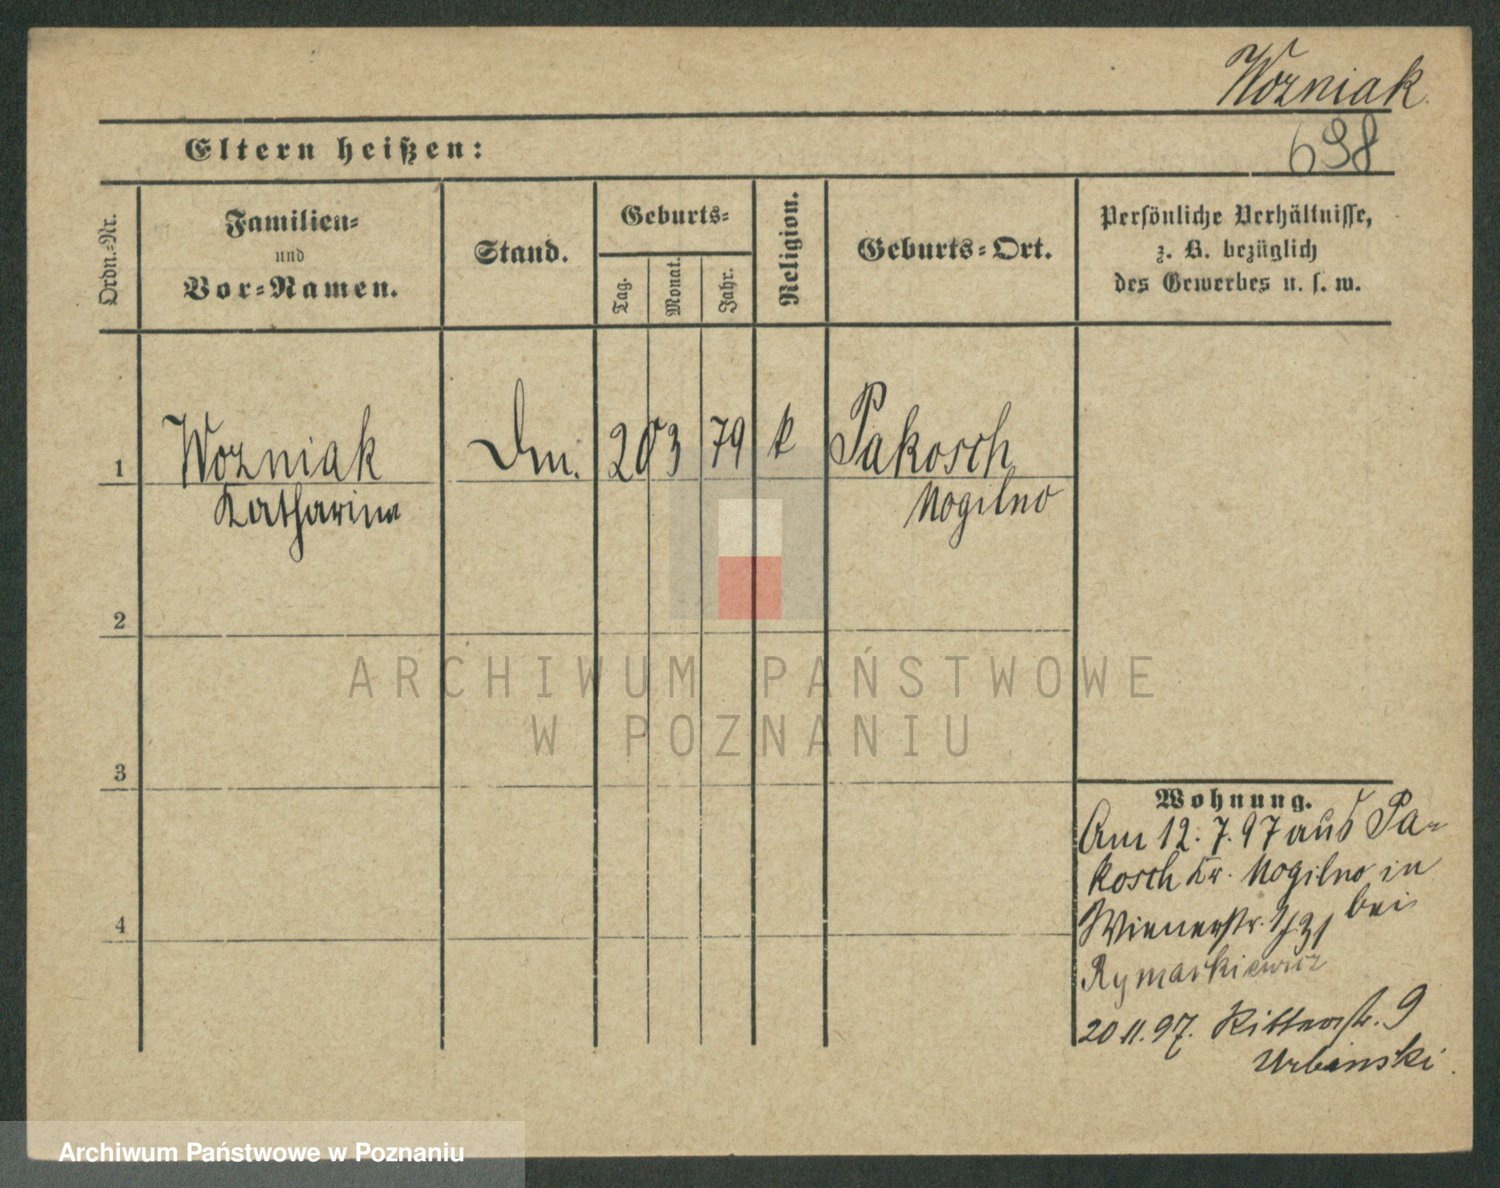 Wozniak.
698
Eltern heißen:
Ordn.-Nr.
Familien-
und
Vor-Namen.
Stand.
Geburts-
Tag.
Monat.
Jahr.
Religion.
Geburts-Ort.
Persönliche Verhältnisse,
z. B. bezüglich
des Gewerbes u. s. w.
1
Wozniak
Dm.
20 3 79
k
Pakosch
Katharina
Mogilno
2
ARCHIWUM PAŃSTWOWE
W POZNANIU
3
Wohnung.
Am 12.7.97 aus Pa-
kosch Kr. Mogilno in
Wienerstr. bei
4
Rymarkiewicz
20 11. 97. Ritterstr. 9
Urbanski.
Archiwum Państwowe w Poznaniu